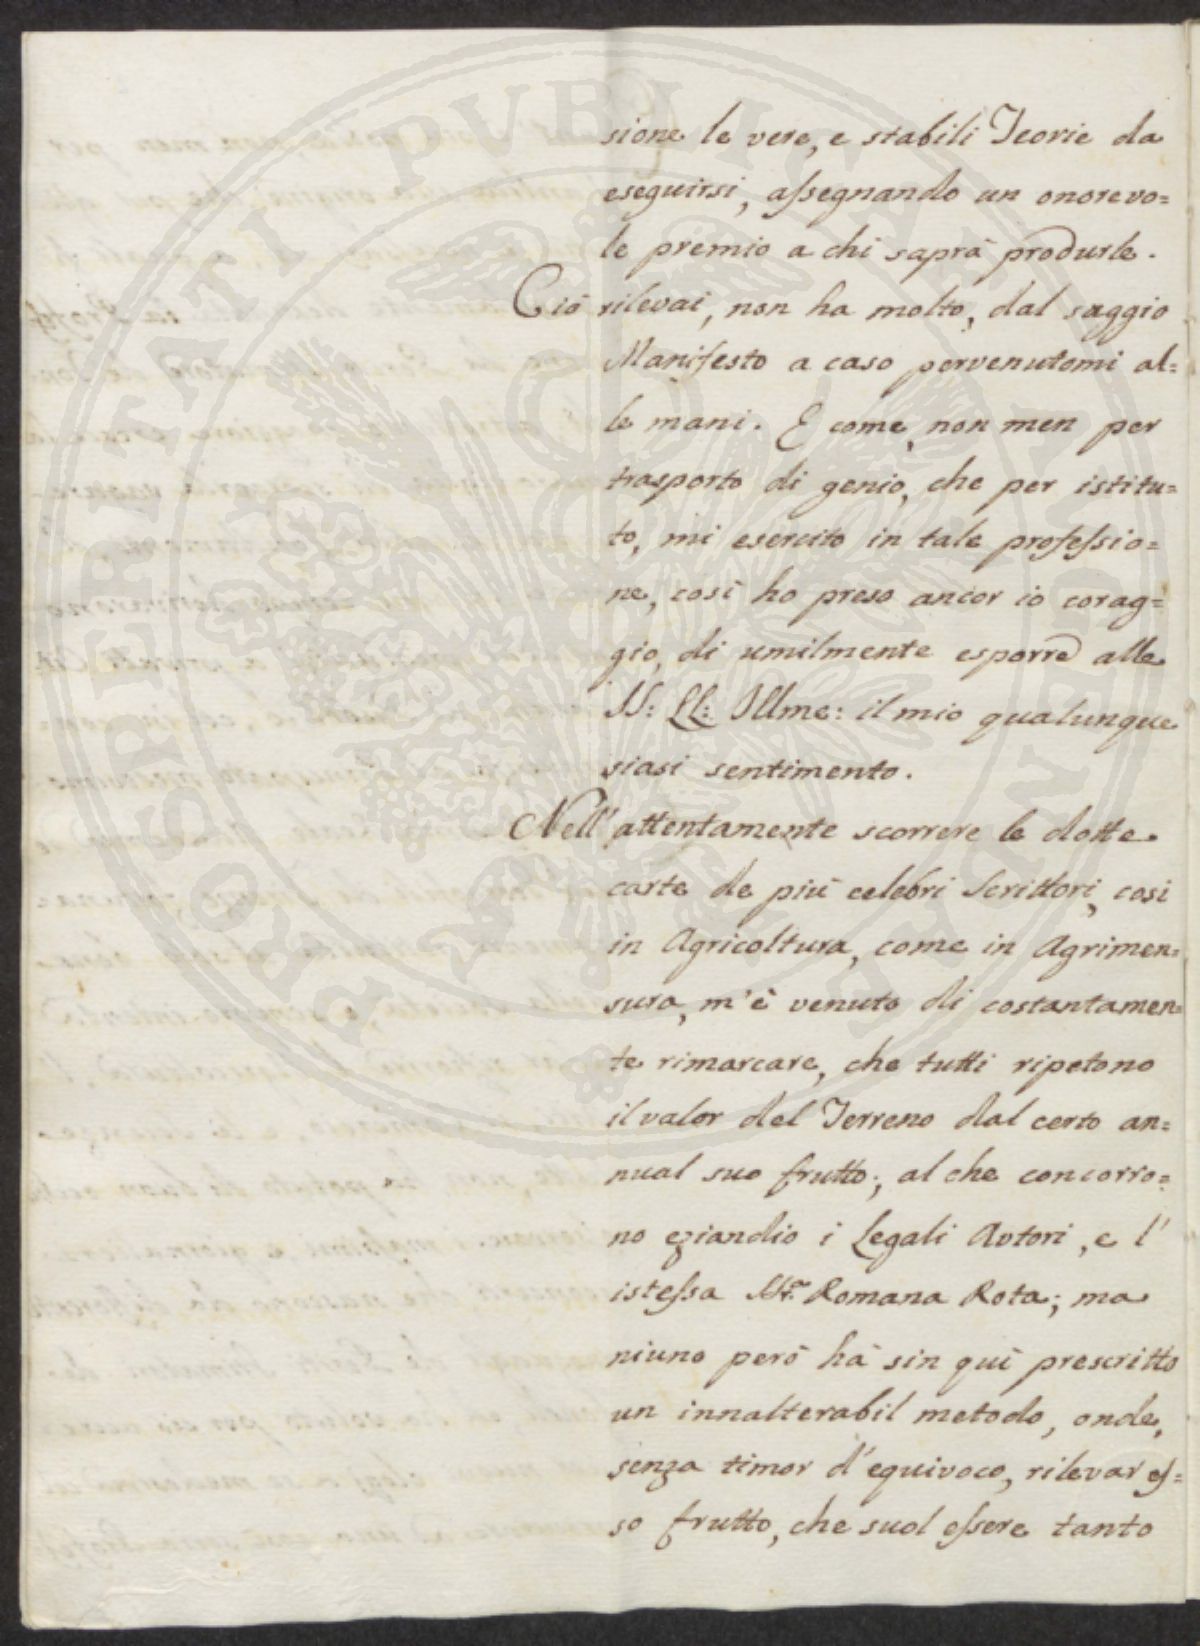 sione le vere, e stabili Teorie da
eseguirsi, assegnando un onorevo=
le premio a chi saprà produrle.
Ciò rilevai, non ha molto, dal saggio
Manifesto a caso pervenutomi al=
le mani. E come, non men per
trasporto di genio, che per istitu=
to, mi esercito in tale professio=
ne, così ho preso ancor io corag=
gio, di umilmente esporre alle
SS: LL: Illme: il mio qualunque
siasi sentimento.
Nell' attentamente scorrere le dotte
carte de più celebri Scrittori, così
in Agricoltura, come in Agrimen=
sura, m'è venuto di costantamen=
te rimarcare, che tutti ripetono
il valor del Terreno dal certo an=
nual suo frutto; al che concorro=
no eziandio i Legali Autori, e l'
istessa Romana Rota; ma
niuno però hà sin quì prescritto
un innalterabil metodo, onde,
senza timor d'equivoco, rilevar es=
so frutto, che suol essere tanto
PROSPERITATI PUBLICAE AUGENDAE